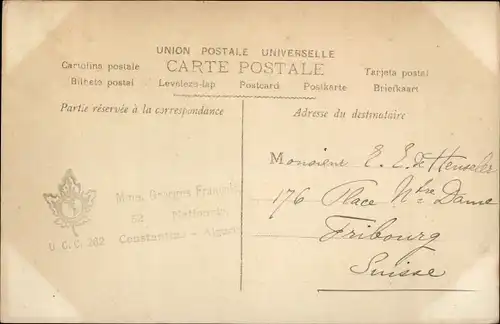 UNION POSTALE UNIVERSELLE
CARTE POSTALE
Cartolina postale
Tarjeta postal
Bilhete postal Levelezo-lap Postcard Postkarte Briefkaart
Partie réservée à la correspondance
Adresse du destinataire
Monsieur E. E. de Henseler
176 Place Ntre Dame
Fribourg
Suisse
Mme. Georges François
62 Nationale,
U.C.C. 202 Constantine - Algérie